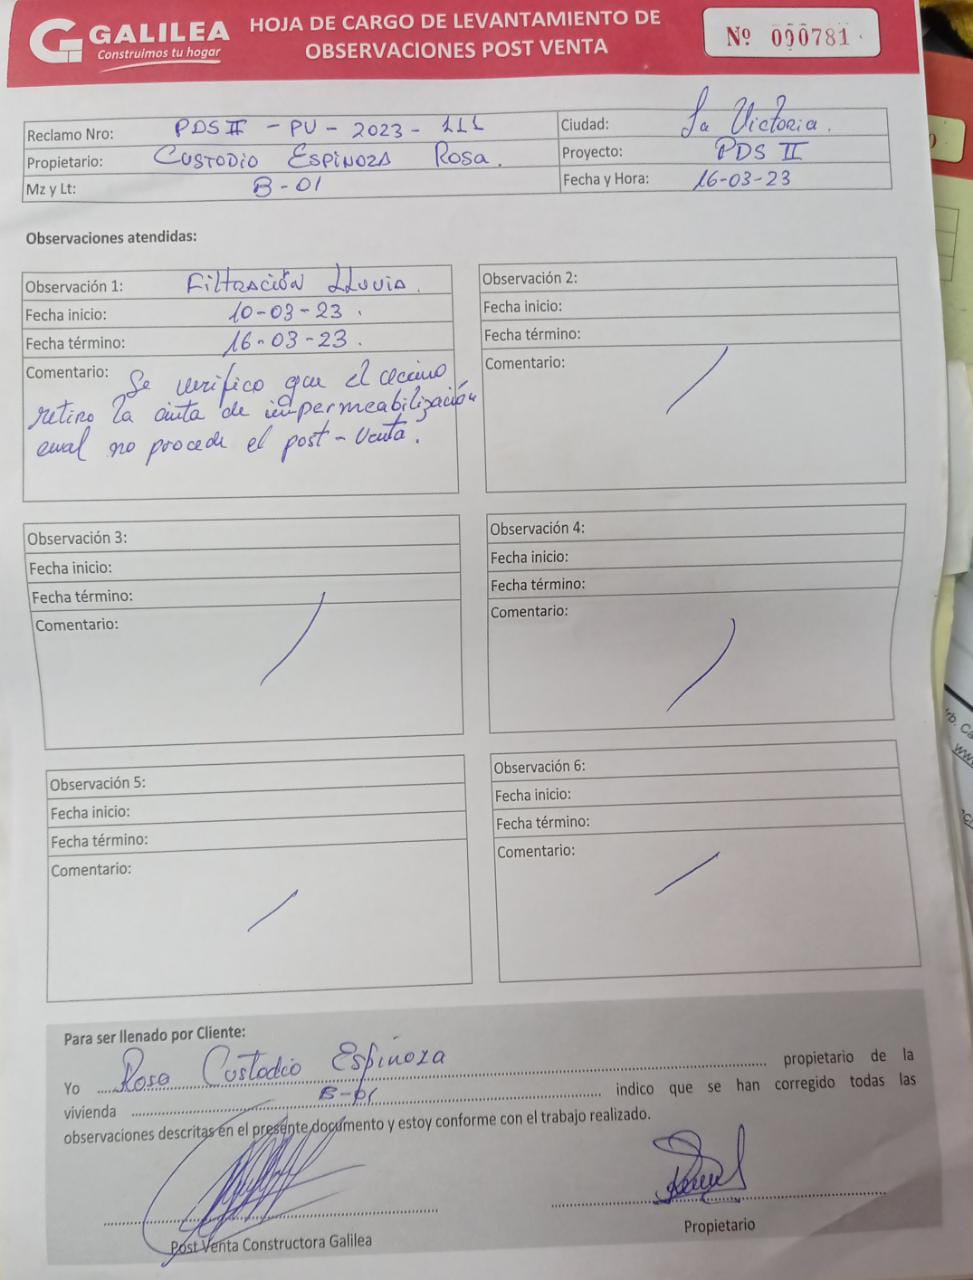 GALILEA
Construimos tu hogar
HOJA DE CARGO DE LEVANTAMIENTO DE
OBSERVACIONES POST VENTA
Nº 000781
Reclamo Nro: PDS II - PU - 2023 - 111
Ciudad: La Victoria.
Propietario: CUSTODIO ESPINOZA Rosa.
Proyecto: PDS II
Mz y Lt: B-01
Fecha y Hora: 16-03-23
Observaciones atendidas:
Observación 1: Filtración LLuvia.
Fecha inicio: 10-03-23.
Fecha término: 16-03-23.
Comentario: Se verifico que el vecino
retiro la cinta de impermeabilización
cual no procede el post-venta.
Observación 2:
Fecha inicio:
Fecha término:
Comentario:
Observación 3:
Fecha inicio:
Fecha término:
Comentario:
Observación 4:
Fecha inicio:
Fecha término:
Comentario:
Observación 5:
Fecha inicio:
Fecha término:
Comentario:
Observación 6:
Fecha inicio:
Fecha término:
Comentario:
Para ser llenado por Cliente:
Yo Rosa Custodio Espinoza propietario de la
vivienda B-01 indico que se han corregido todas las
observaciones descritas en el presente documento y estoy conforme con el trabajo realizado.
Post Venta Constructora Galilea
Propietario